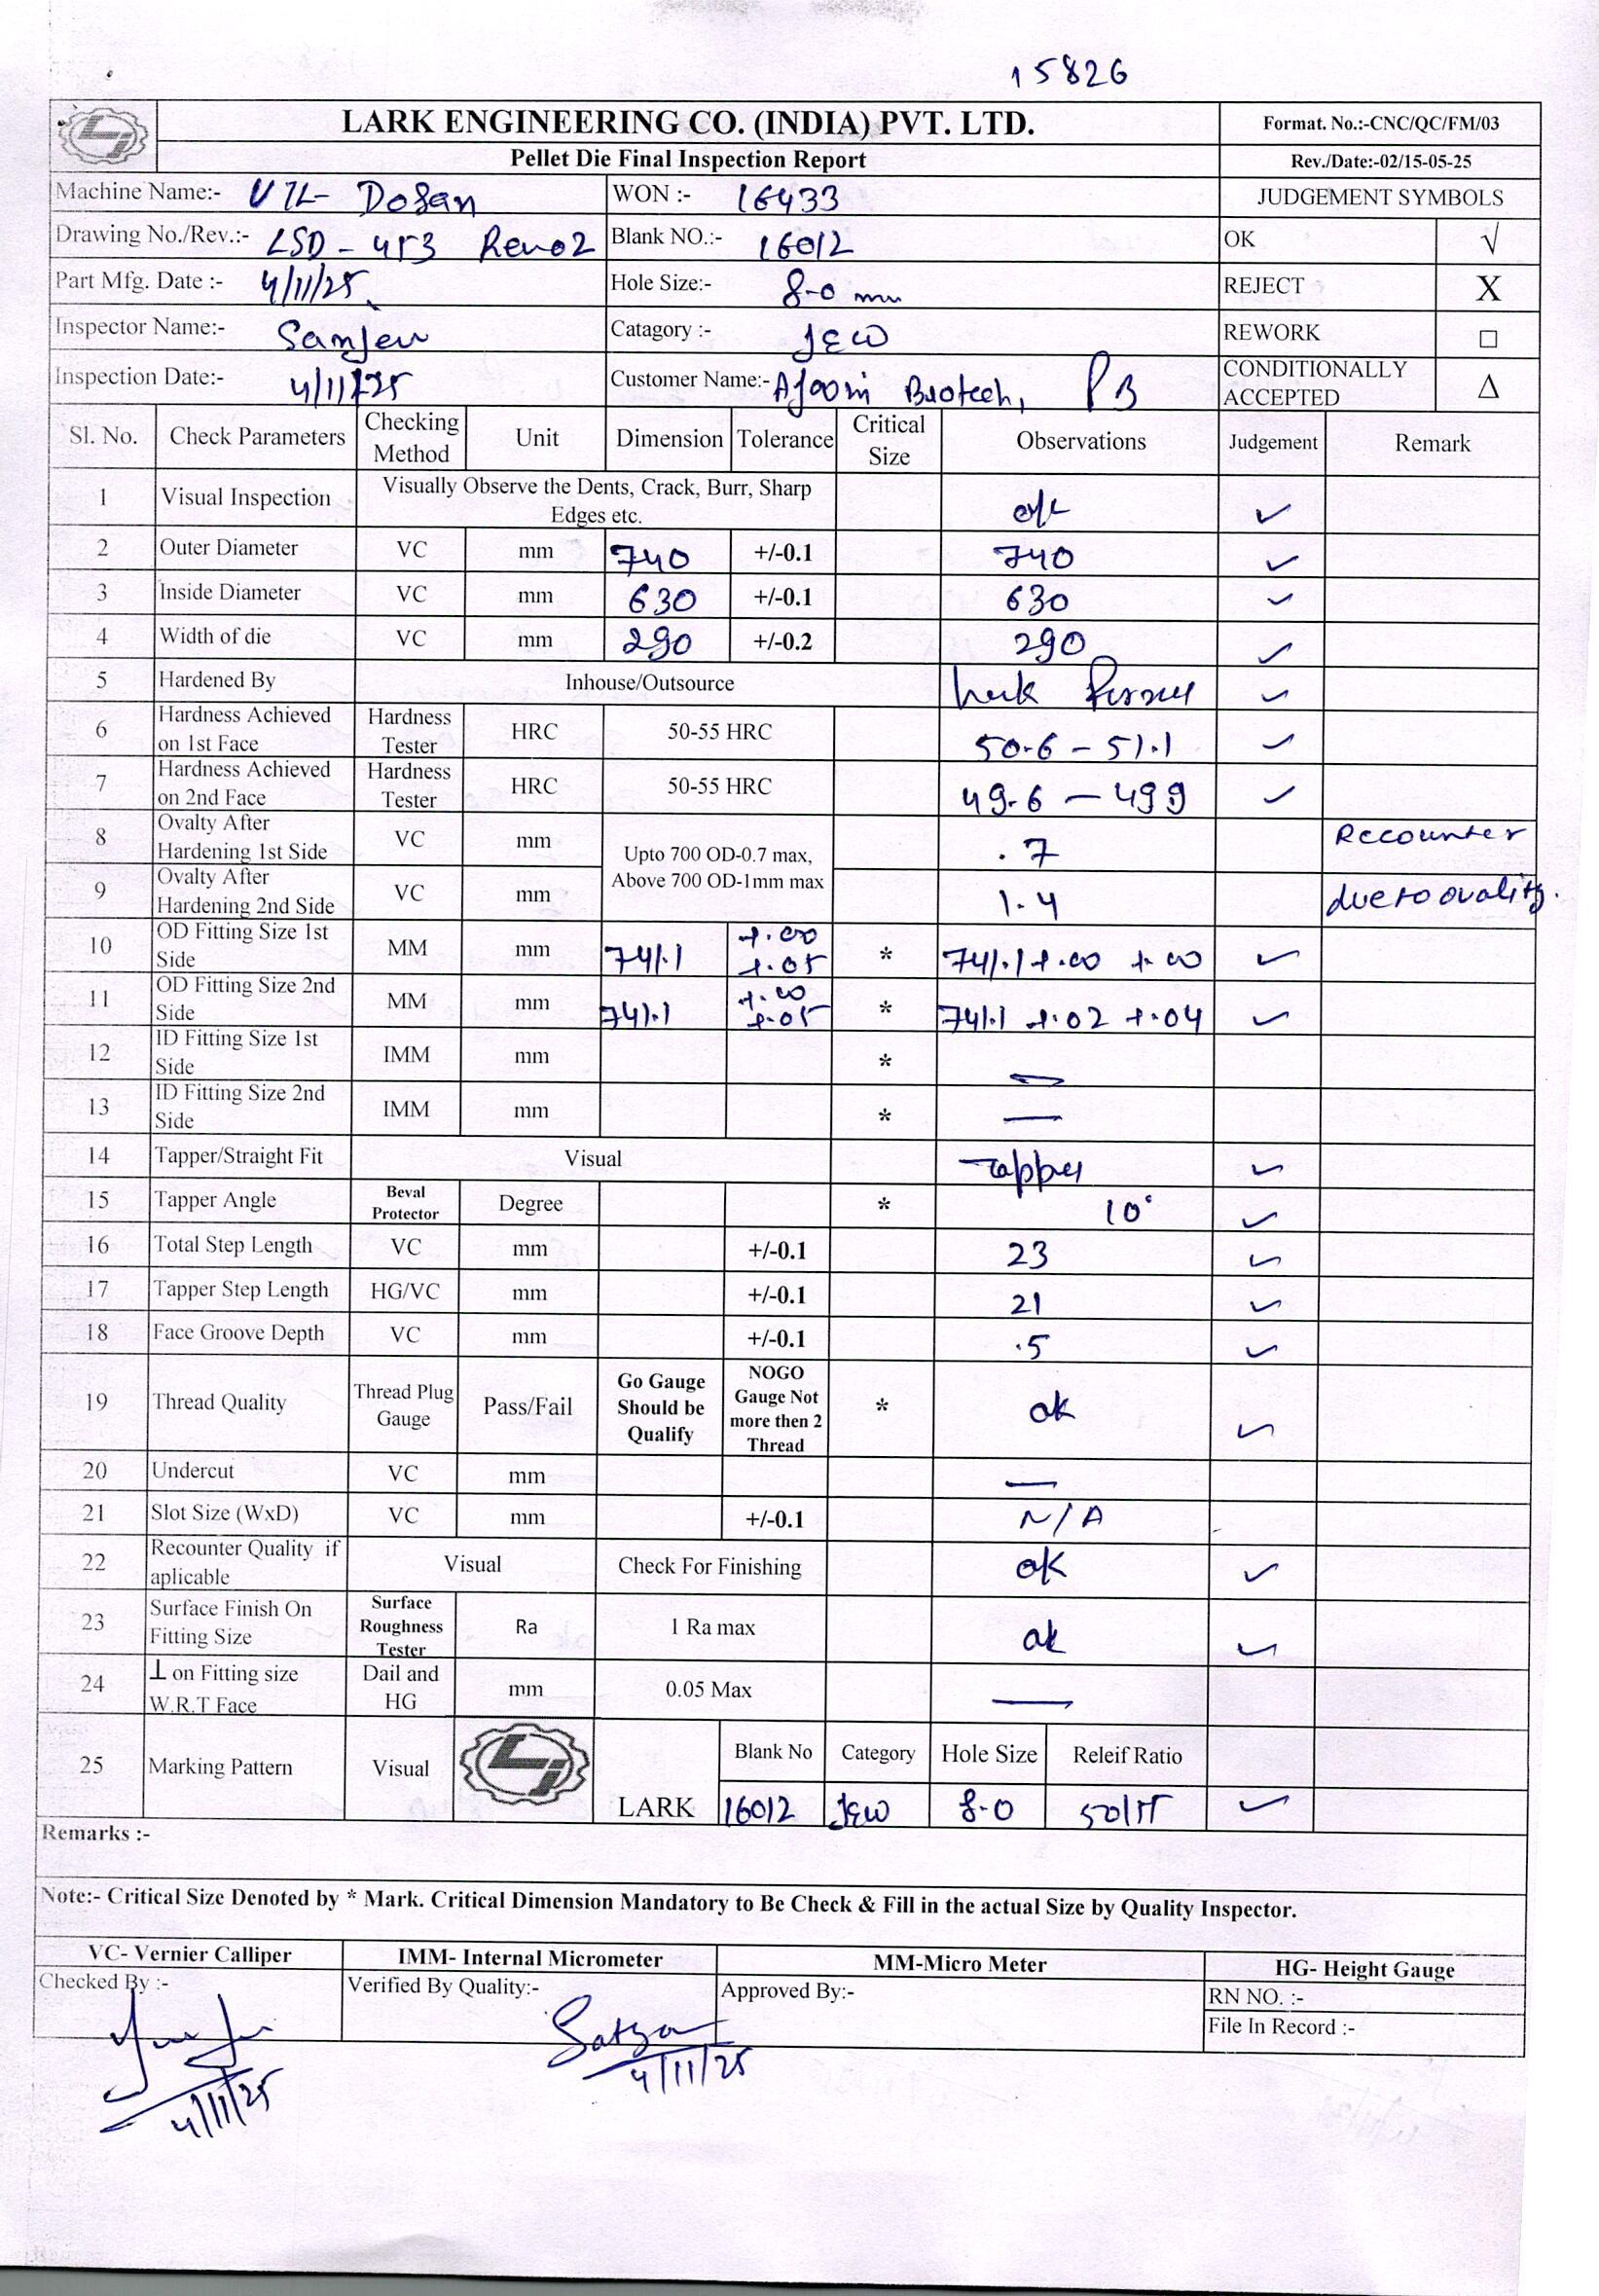 15826
LARK ENGINEERING CO. (INDIA) PVT. LTD. Format. No.:-CNC/QC/FM/03
Pellet Die Final Inspection Report Rev./Date:-02/15-05-25
Machine Name:- VTL- Dosan WON :- 16433 JUDGEMENT SYMBOLS
Drawing No./Rev.:- LSD - 453 Rev02 Blank NO.:- 16012 OK √
Part Mfg. Date :- 4/11/25 Hole Size:- 8.0 mm REJECT X
Inspector Name:- Sanjeev Catagory :- JEW REWORK □
Inspection Date:- 4/11/25 Customer Name:- Ajooni Biotech, PB CONDITIONALLY ACCEPTED Δ
Sl. No. Check Parameters Checking Method Unit Dimension Tolerance Critical Size Observations Judgement Remark
1 Visual Inspection Visually Observe the Dents, Crack, Burr, Sharp Edges etc. o/k ✓
2 Outer Diameter VC mm 740 +/-0.1 740 ✓
3 Inside Diameter VC mm 630 +/-0.1 630 ✓
4 Width of die VC mm 290 +/-0.2 290 ✓
5 Hardened By Inhouse/Outsource ✓
6 Hardness Achieved on 1st Face Hardness Tester HRC 50-55 HRC 50.6 - 51.1 ✓
7 Hardness Achieved on 2nd Face Hardness Tester HRC 50-55 HRC 49.6 - 49.9 ✓
8 Ovalty After Hardening 1st Side VC mm Upto 700 OD-0.7 max, Above 700 OD-1mm max .7 Recounter
9 Ovalty After Hardening 2nd Side VC mm 1.4 due to ovality.
10 OD Fitting Size 1st Side MM mm 741.1 +.00 +.05 * 741.1 +.00 +.00 ✓
11 OD Fitting Size 2nd Side MM mm 741.1 +.00 +.05 * 741.1 +.02 +.04 ✓
12 ID Fitting Size 1st Side IMM mm * —
13 ID Fitting Size 2nd Side IMM mm * —
14 Tapper/Straight Fit Visual Tapper ✓
15 Tapper Angle Beval Protector Degree * 10° ✓
16 Total Step Length VC mm +/-0.1 23 ✓
17 Tapper Step Length HG/VC mm +/-0.1 21 ✓
18 Face Groove Depth VC mm +/-0.1 .5 ✓
19 Thread Quality Thread Plug Gauge Pass/Fail Go Gauge Should be Qualify NOGO Gauge Not more then 2 Thread * ok ✓
20 Undercut VC mm —
21 Slot Size (WxD) VC mm +/-0.1 N/A
22 Recounter Quality if aplicable Visual Check For Finishing ok ✓
23 Surface Finish On Fitting Size Surface Roughness Tester Ra 1 Ra max ok ✓
24 ⊥ on Fitting size W.R.T Face Dail and HG mm 0.05 Max —
25 Marking Pattern Visual LARK Blank No Category Hole Size Releif Ratio
16012 JEW 8.0 ✓
Remarks :-
Note:- Critical Size Denoted by * Mark. Critical Dimension Mandatory to Be Check & Fill in the actual Size by Quality Inspector.
VC- Vernier Calliper IMM- Internal Micrometer MM-Micro Meter HG- Height Gauge
Checked By :- Verified By Quality:- Approved By:- RN NO. :-
File In Record :-
Satya
4/11/25 4/11/25